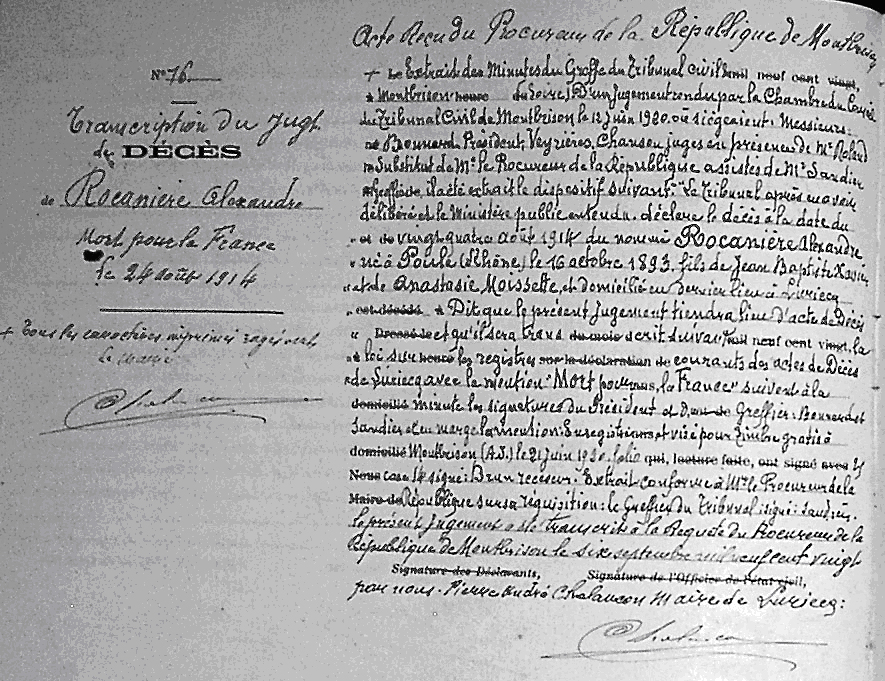 N° 76
Transcription du Jugt
de DÉCÈS
de Rocanière Alexandre
Mort pour la France
le 24 août 1914
+ tous les caractères imprimés rayés
le maire
Acte Reçu du Procureur de la République de Montbrison
+ Le Extrait des Minutes du Greffe du Tribunal civil mil neuf cent vingt,
à Montbrison heure (Loire) D'un Jugement rendu par la Chambre du Conseil
du Tribunal Civil de Montbrison le 12 juin 1920. où siégeaient: Messieurs
Bonnard Président, Veyrières, Chansen juges en présence de Mr Roland
Substitut de Mr le Procureur de la République assistés de Mr Sandier
greffier, il a été extrait le dispositif suivant: "Le Tribunal après en avoir
délibéré et le Ministère public entendu, déclare le décès à la date du
vingt quatre août 1914 du nommé Rocanière Alexandre
né à Poule (Rhône) le 16 octobre 1893, fils de Jean Baptiste Xavier
et de Anastasie Moissette, et domicilié en dernier lieu à Luriecq
est décédé Dit que le présent Jugement tiendra lieu d'acte de Décès
Dressé le et qu'il sera trans du mois crit suivant mil neuf cent vingt, la
loi sur heure les registres sur la déclaration de courants des actes de Décès
de Luriecq avec la mention "Mort pour nous, la France" suivent à la
domicilié minute les signatures du Président et D, un de Greffier: Bonnard et
Sandier et en marge la mention: Enregistré et visé pour timbre gratis à
domicilié Montbrison (A.J.) le 21 juin 1920. folio qui, lecture faite, ont signé avec
Nous case 14 signé: Brun receveur. Extrait conforme à Mr le Procureur de la
Maire de République sur sa réquisition: le Greffier du Tribunal signé: Sandier.
le présent Jugement a été transcrit à la Requête du Procureur de la
République de Montbrison le six septembre mil neuf cent vingt
Signature des Déclarants, Signature de l'Officier de l'état civil,
par nous. Pierre André Chalancon Maire de Luriecq: